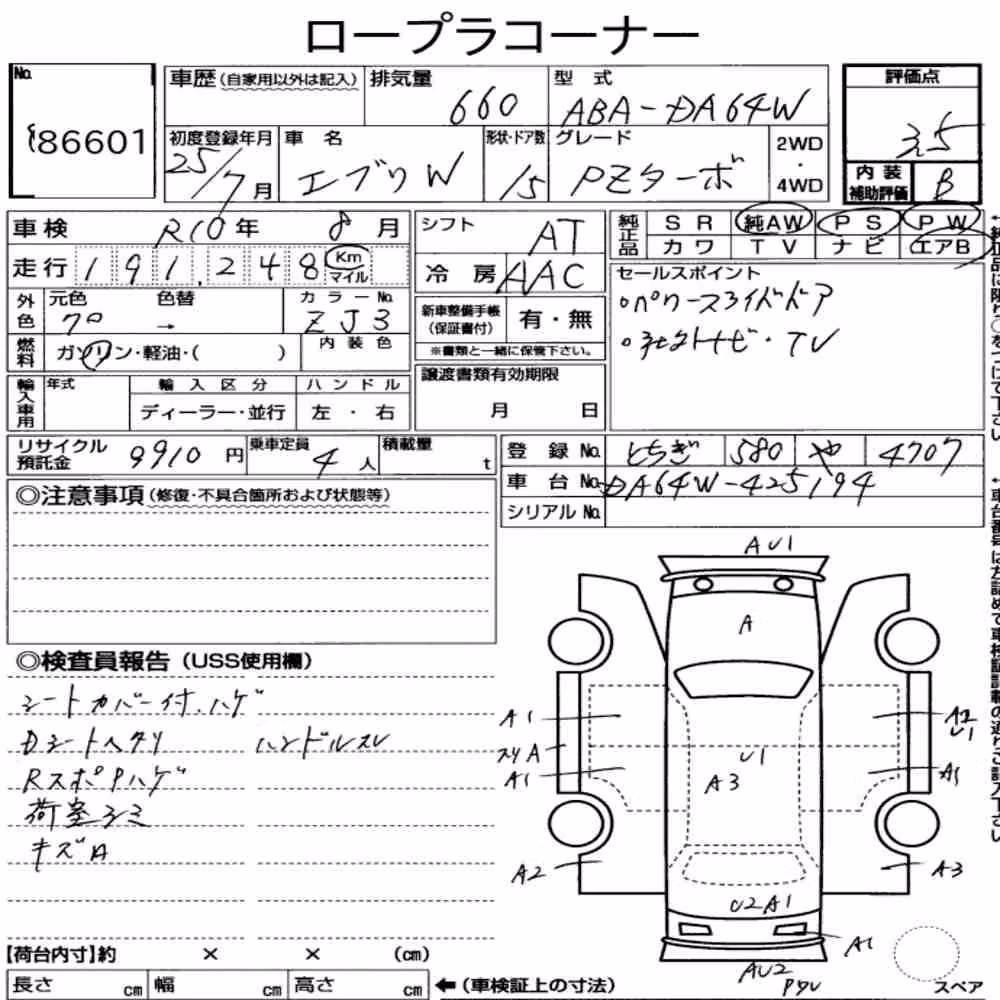 ロープラコーナー
No. 86601
車歴 (自家用以外は記入) 排気量 660 型式 ABA-DA64W
評価点 3.5
初度登録年月 25/7月 車名 エブリW 形状・ドア数 /5 グレード PZターボ 2WD・4WD
内装補助評価 B
車検 R10年 8月
走行 191,248 Km マイル
シフト AT
冷房 AAC
純正品 SR 純AW PS PW
カワ TV ナビ エアB
外色 元色 クロ 色替 → カラーNo. ZJ3
燃料 ガソリン・軽油・( ) 内装色
新車整備手帳(保証書付) 有・無
※書類と一緒に保管下さい。
セールスポイント
・パワースライドドア
・社外ナビ・TV
輸入車用 年式 輸入区分 ハンドル
ディーラー・並行 左・右
譲渡書類有効期限
月 日
リサイクル預託金 9910円 乗車定員 4人 積載量 t
登録No. とちぎ 580 や 4707
車台No. DA64W-425194
シリアルNo.
◎注意事項(修復・不具合箇所および状態等)
◎検査員報告 (USS使用欄)
シートカバー付.ハゲ
Dシートヘタリ ハンドルスレ
RスポPハゲ
荷室シミ
キズA
【荷台内寸】約 × × (cm)
長さ cm 幅 cm 高さ cm ←(車検証上の寸法)
AU1
A
A1
A2
U1
スリA
U1
A1
A3
A1
A2
A3
U2A1
A1
AU2
スペア
←純正品に限り○をつけて下さい
←車台番号は左詰めで車検証記載の通りご記入下さい